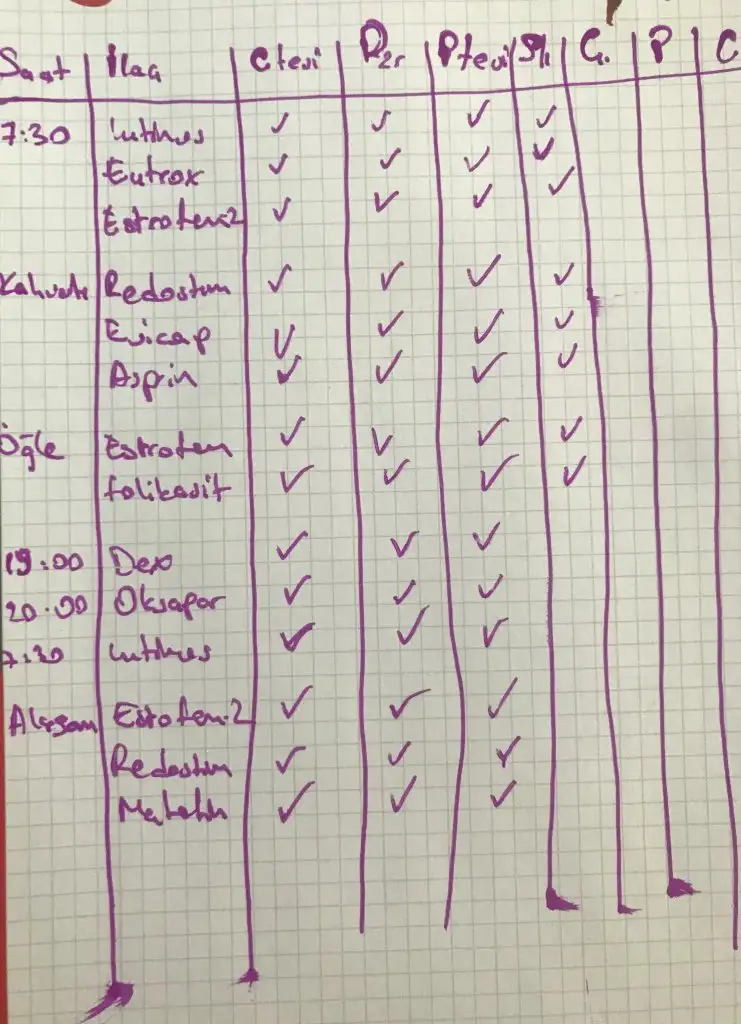 Saat İlaç Ctesi Pzr Ptesi Salı Ç. P C
7:30 lutinus ✓ ✓ ✓ ✓
Eutrox ✓ ✓ ✓ ✓
Estrofem-2 ✓ ✓ ✓ ✓
Kahvaltı Redoston ✓ ✓ ✓ ✓
Evicap ✓ ✓ ✓ ✓
Asprin ✓ ✓ ✓ ✓
Öğle Estrofem ✓ ✓ ✓ ✓
folikasit ✓ ✓ ✓ ✓
19:00 Dexo ✓ ✓ ✓
20:00 Oksapar ✓ ✓ ✓
7:30 lutinus ✓ ✓ ✓
Akşam Estrofem-2 ✓ ✓ ✓
Redoston ✓ ✓ ✓
✓ ✓ ✓